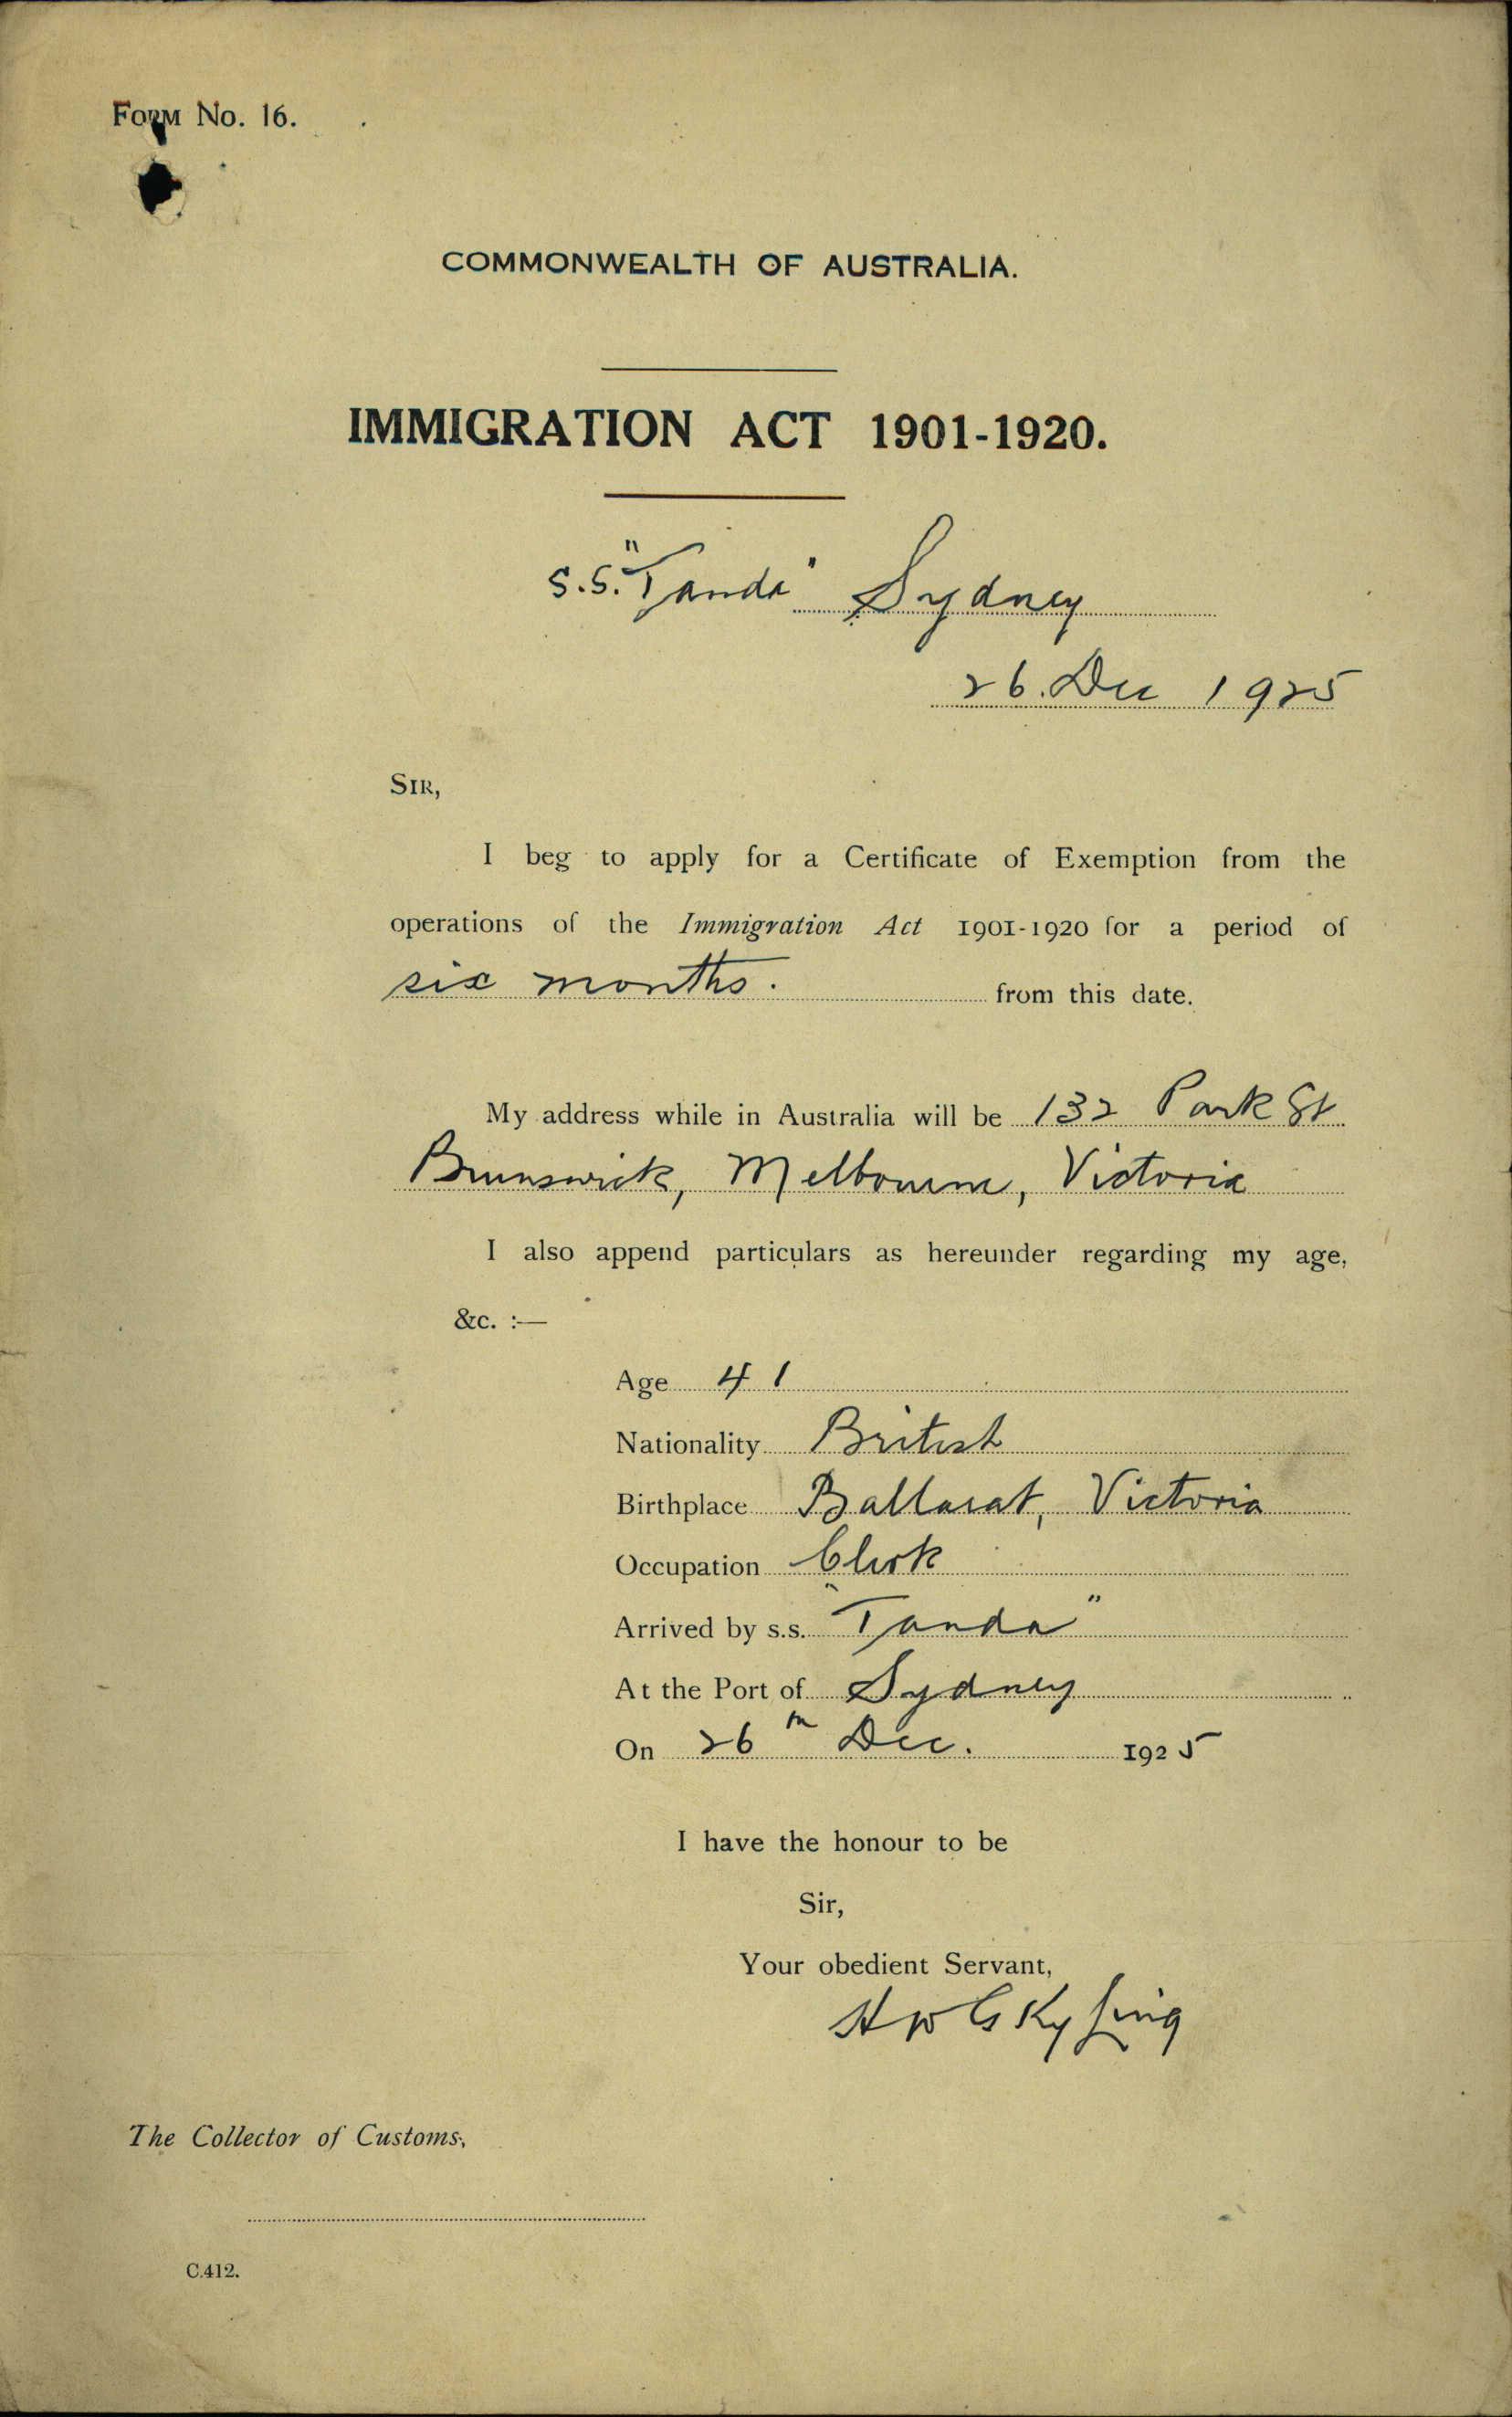 FORM No. 16.
COMMONWEALTH OF AUSTRALIA.
IMMIGRATION ACT 1901-1920.
S.S. "Tanda" Sydney
26. Dec 1925
SIR,
I beg to apply for a Certificate of Exemption from the
operations of the Immigration Act 1901-1920 for a period of
six months. from this date.
My address while in Australia will be 132 Park St
Brunswick, Melbourne, Victoria
I also append particulars as hereunder regarding my age,
&c. :—
Age 41
Nationality British
Birthplace Ballarat, Victoria
Occupation Clerk
Arrived by s.s. "Tanda"
At the Port of Sydney
On 26th Dec. 1925
I have the honour to be
Sir,
Your obedient Servant,
The Collector of Customs.
C.412.